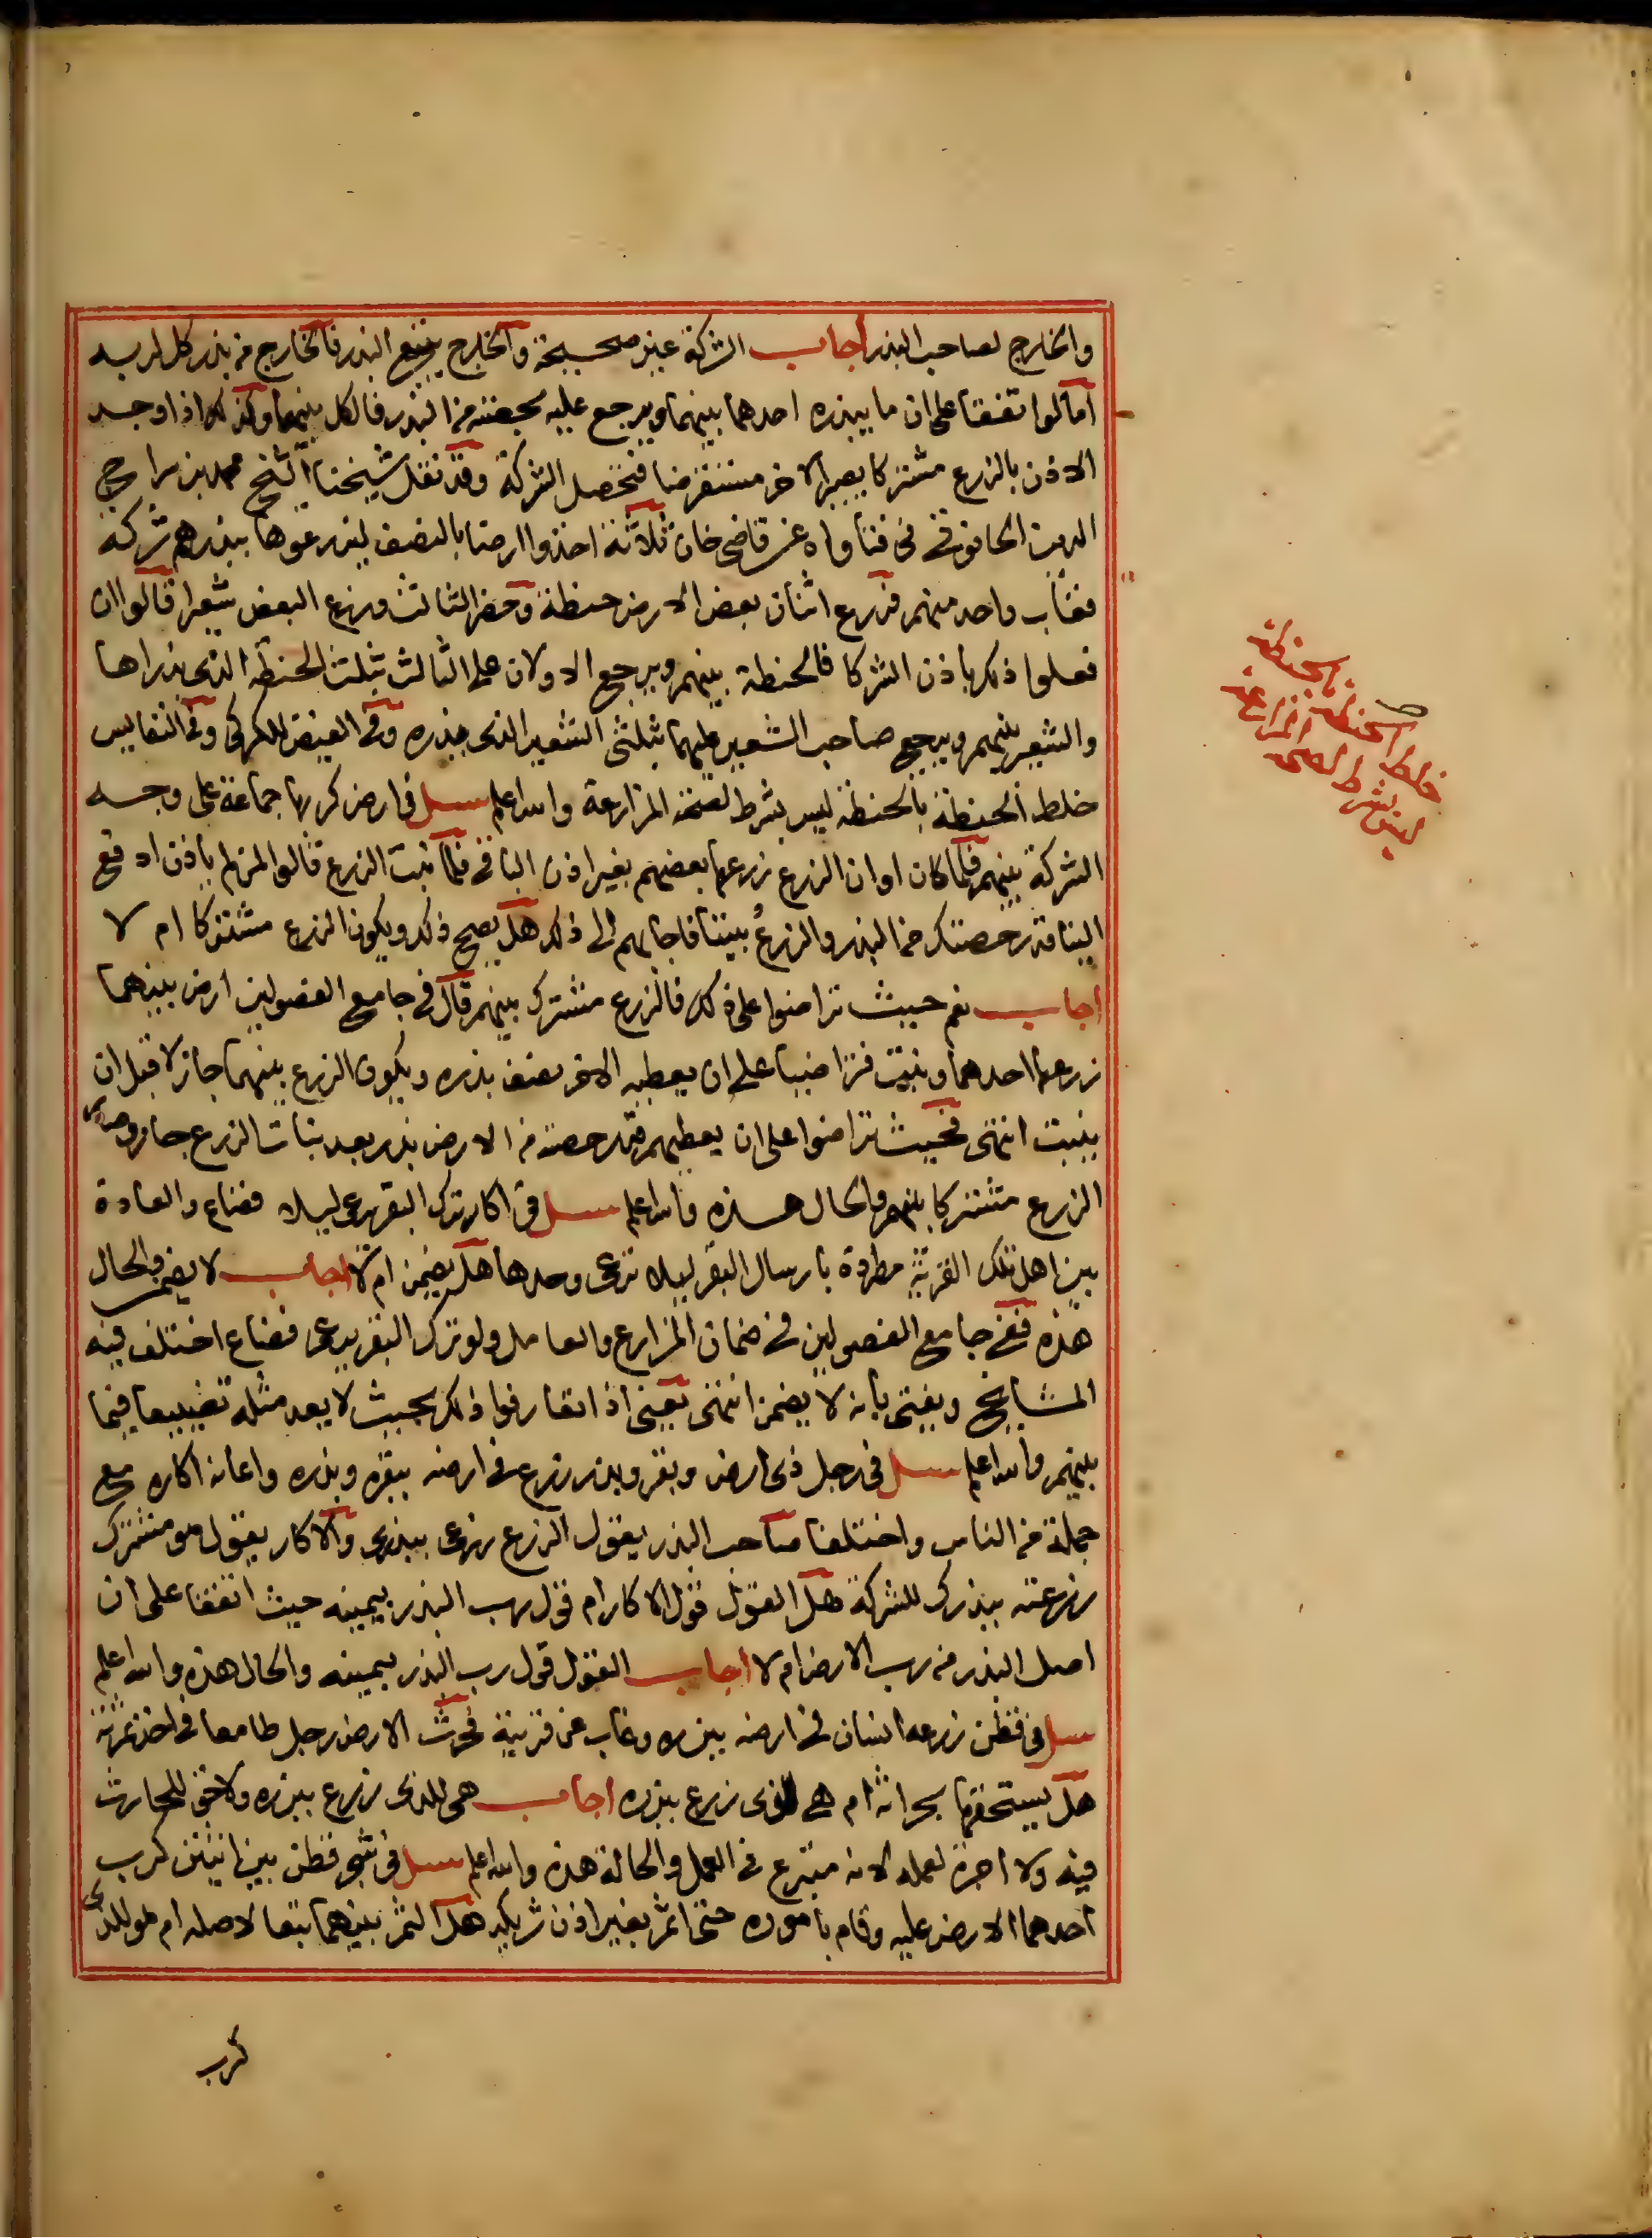 والخارج لصاحب البذر اجاب الشركة غير صحيحة والخارج يتبع البذر فالخارج من بذر كل لربه
اما لو اتفقا على ان ما يبذره احدهما بينهما ويرجع عليه بحصته من البذر فالكل بينهما وكذلك اذا وجد
الاذن بالزرع مشتركا يصير الاخر مستقرضا فتحصل الشركة وقد نقل شيخنا الشيخ محمد بن سراج
الدين الحانوتي في فتاواه عن قاضي خان ثلاثة اخذوا ارضا بالنصف ليزرعوها ببذرهم شركة
فغاب واحد منهم فزرع اثنان بعض الارض حنطة وحضر الثالث وزرع البعض شعيرا قالوا ان
فعلوا ذلك باذن الشركا فالحنطة بينهم ويرجع الاولان على الثالث بثلث الحنطة الذي بذراها
والشعير بينهم ويرجع صاحب الشعير عليهما بثلثي الشعير الذي بذره وفي الفيض للكركي وفي النفايس
خلط الحنطة بالحنطة ليس بشرط لصحة المزارعة والله اعلم سل في ارض كربها جماعة على وجه
الشركة بينهم فلما كان اوان الزرع زرعها بعضهم بغير اذن الباقي فلما نبت الزرع قالوا لمن لم ياذن ادفع
الينا قدر حصتك من البذر والزرع بيننا فاجابهم الى ذلك هل يصح ذلك ويكون الزرع مشتركا ام لا
اجاب نعم حيث تراضوا على ذلك فالزرع مشترك بينهم قال في جامع الفصولين ارض بينهما
زرعها احدهما ونبتت فتراضيا على ان يعطيه الاخر نصف بذره ويكون الزرع بينهما جاز لا قبل ان
ينبت انتهى فحيث تراضوا على ان يعطيهم قدر حصته من الارض بذر بعد نبات الزرع جاز وصار
الزرع مشتركا بينهم والحال هذه والله اعلم سل في اكار ترك البقر يرعى ليلا فضاع والعادة
بين اهل تلك القرية مطردة بارسال البقر ليلا ترعى وحدها هل يضمن ام لا اجاب لا يضمن والحال
هذه ففي جامع الفصولين في ضمان المزارع والعامل ولو ترك البقر يرعى فضاع اختلف فيه
المشايخ ويفتى بانه لا يضمن انتهى يعني اذا تعارفوا ذلك بحيث لا يعد مثله تضييعا فيما
بينهم والله اعلم سل في رجل ذي ارض وبقر وبذر زرع في ارضه ببقره وبذره واعانه اكاره مع
جملة من الناس واختلفا صاحب البذر يقول الزرع زرعى ببذرى والاكار يقول هو مشترك
زرعته ببذرك للشركة هل القول قول الاكار ام قول رب البذر بيمينه حيث اتفقا على ان
اصل البذر من رب الارض ام لا اجاب القول قول رب البذر بيمينه والحال هذه والله اعلم
سل في قطن زرعه انسان في ارضه ببذره وغاب عن قريته فحرث الارض رجل طامعا في اخذ ثمرته
هل يستحقها بحراثه ام هي للذي زرع ببذره اجاب هي للذي زرع ببذره ولا حق للحارث
فيه ولا اجرة لعمله لانه متبرع في العمل والحالة هذه والله اعلم سل في شجر قطن بين اثنين كرب
احدهما الارض عليه وقام باموره حتى اثمر بغير اذن شريكه هل الثمر بينهما تبعا لاصله ام هو للذي
كرب
خلط الحنطة بالحنطة
ليس بشرط لصحة المزارعة